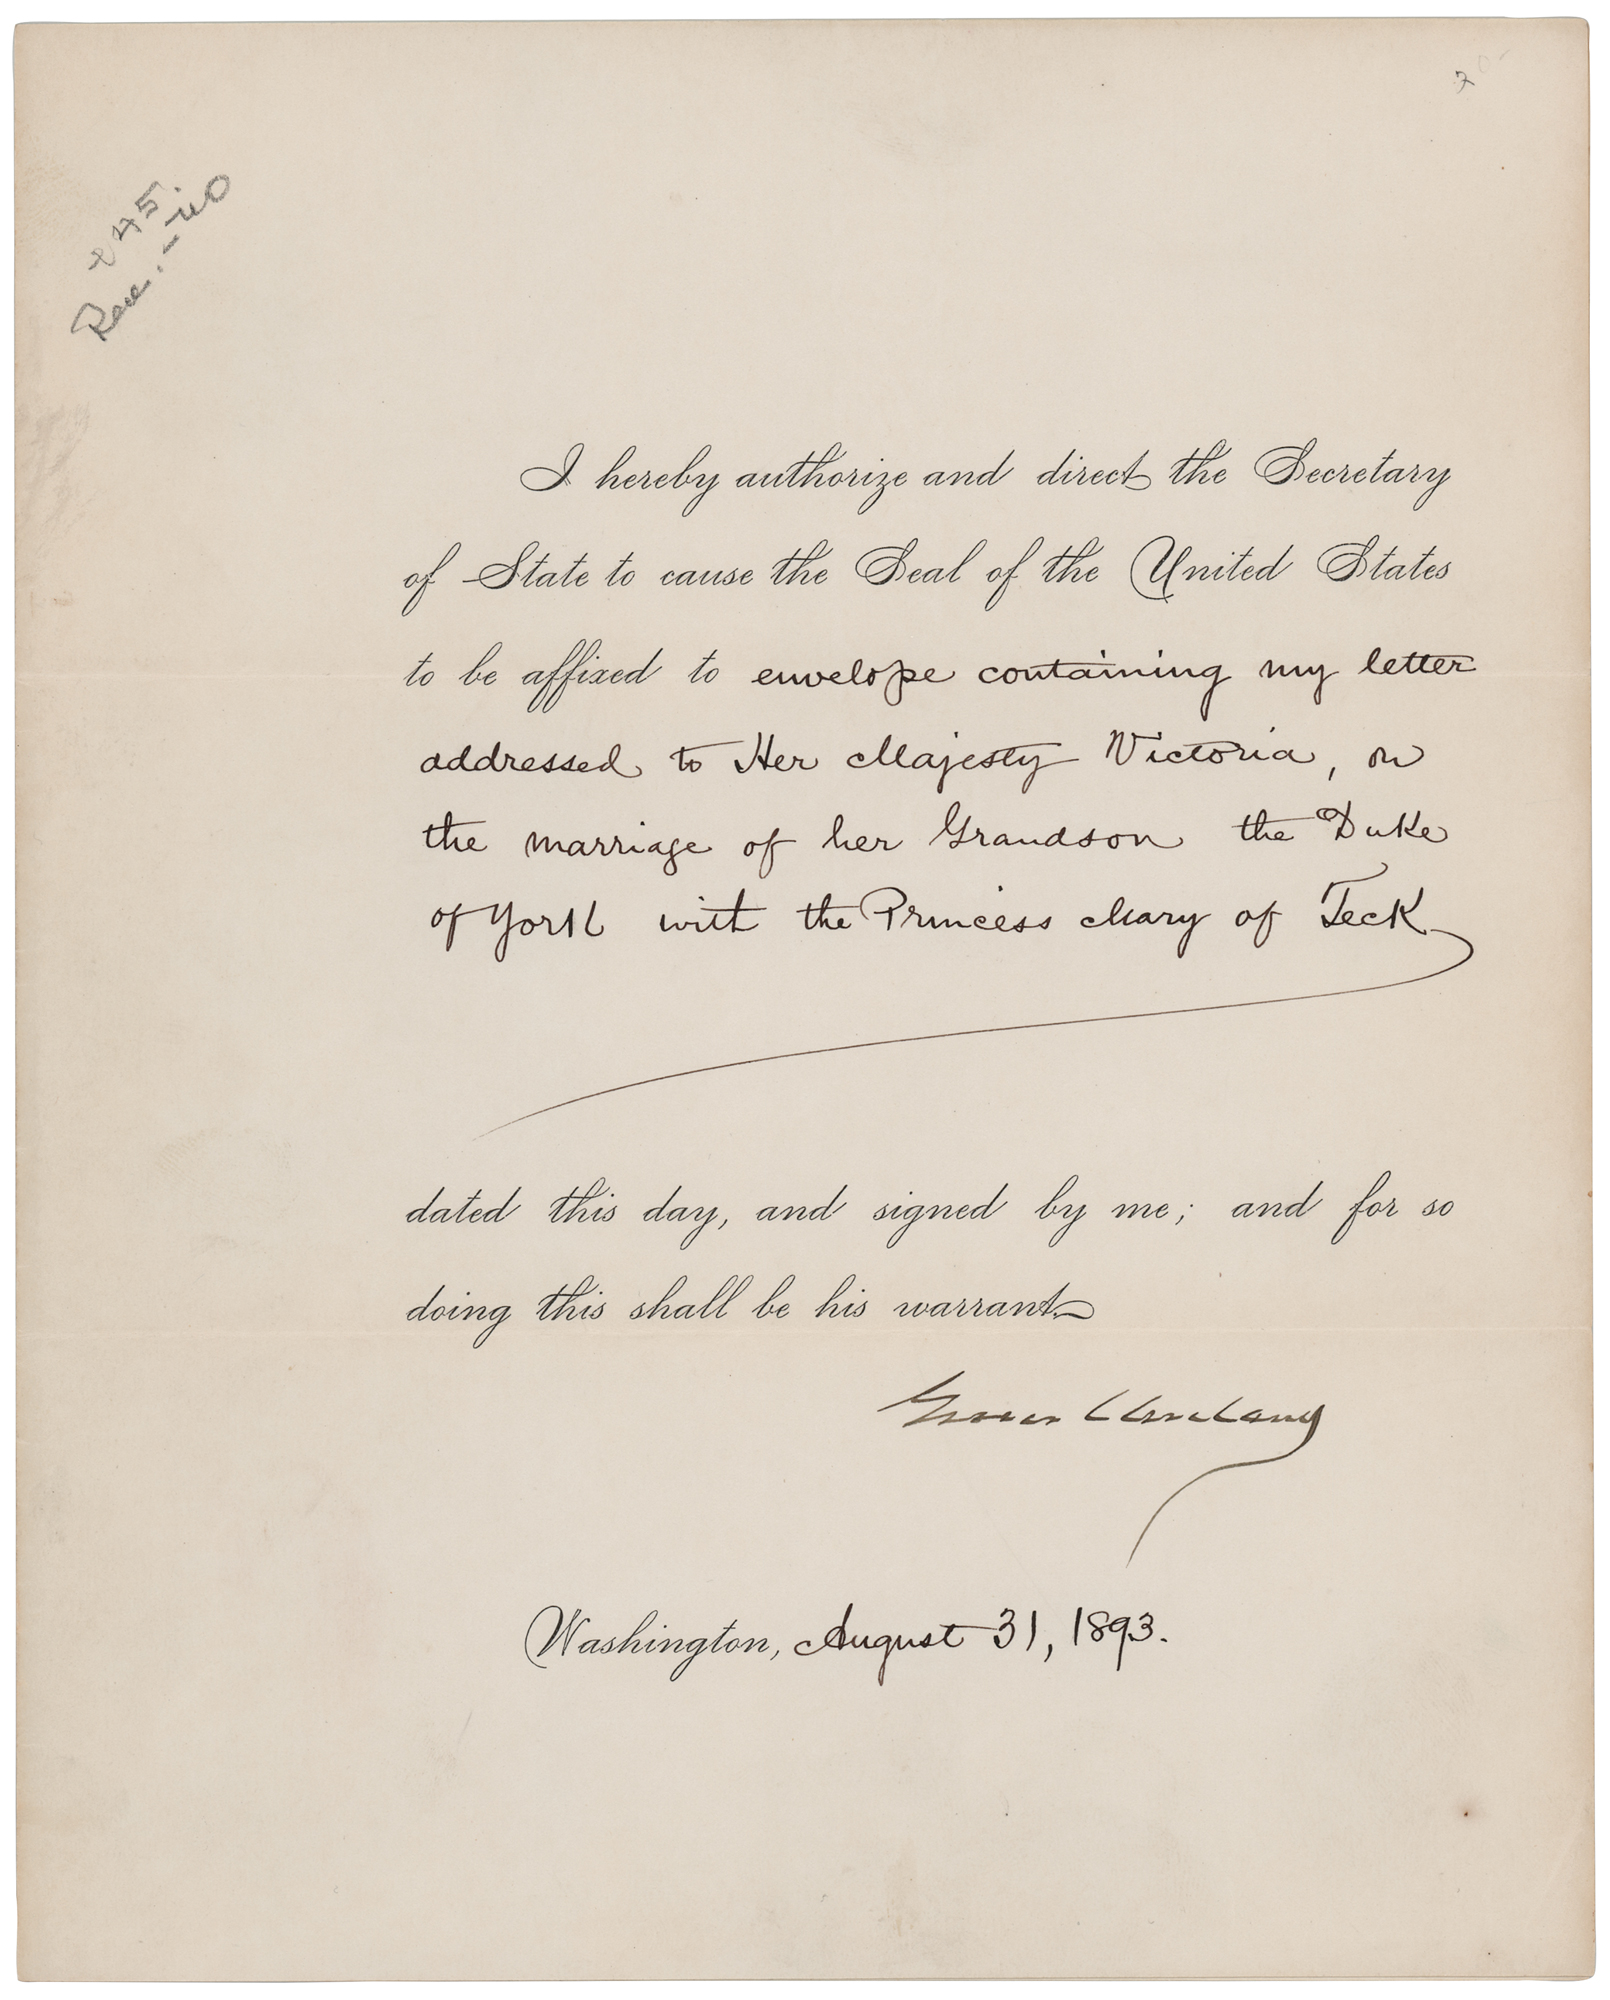 245.
I hereby authorize and direct the Secretary
of State to cause the Seal of the United States
to be affixed to envelope containing my letter
addressed to Her Majesty Victoria, on
the marriage of her Grandson the Duke
of York with the Princess Mary of Teck
dated this day, and signed by me; and for so
doing this shall be his warrant.
Grover Cleveland
Washington, August 31, 1893.